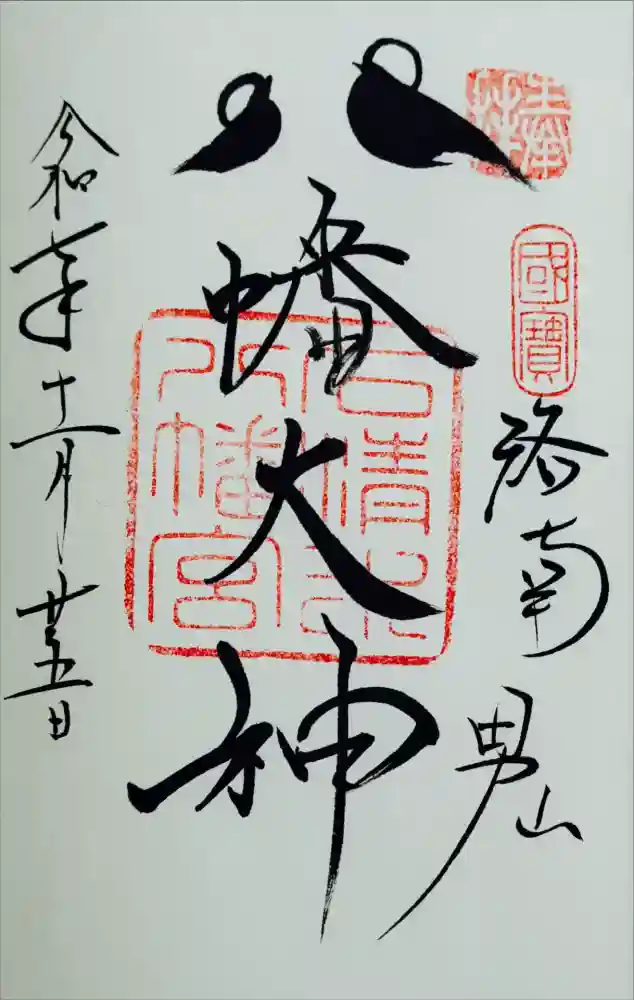 奉拝
國寶
洛南
男山
八幡大神
石清水
八幡宮
令和七年十一月廿五日